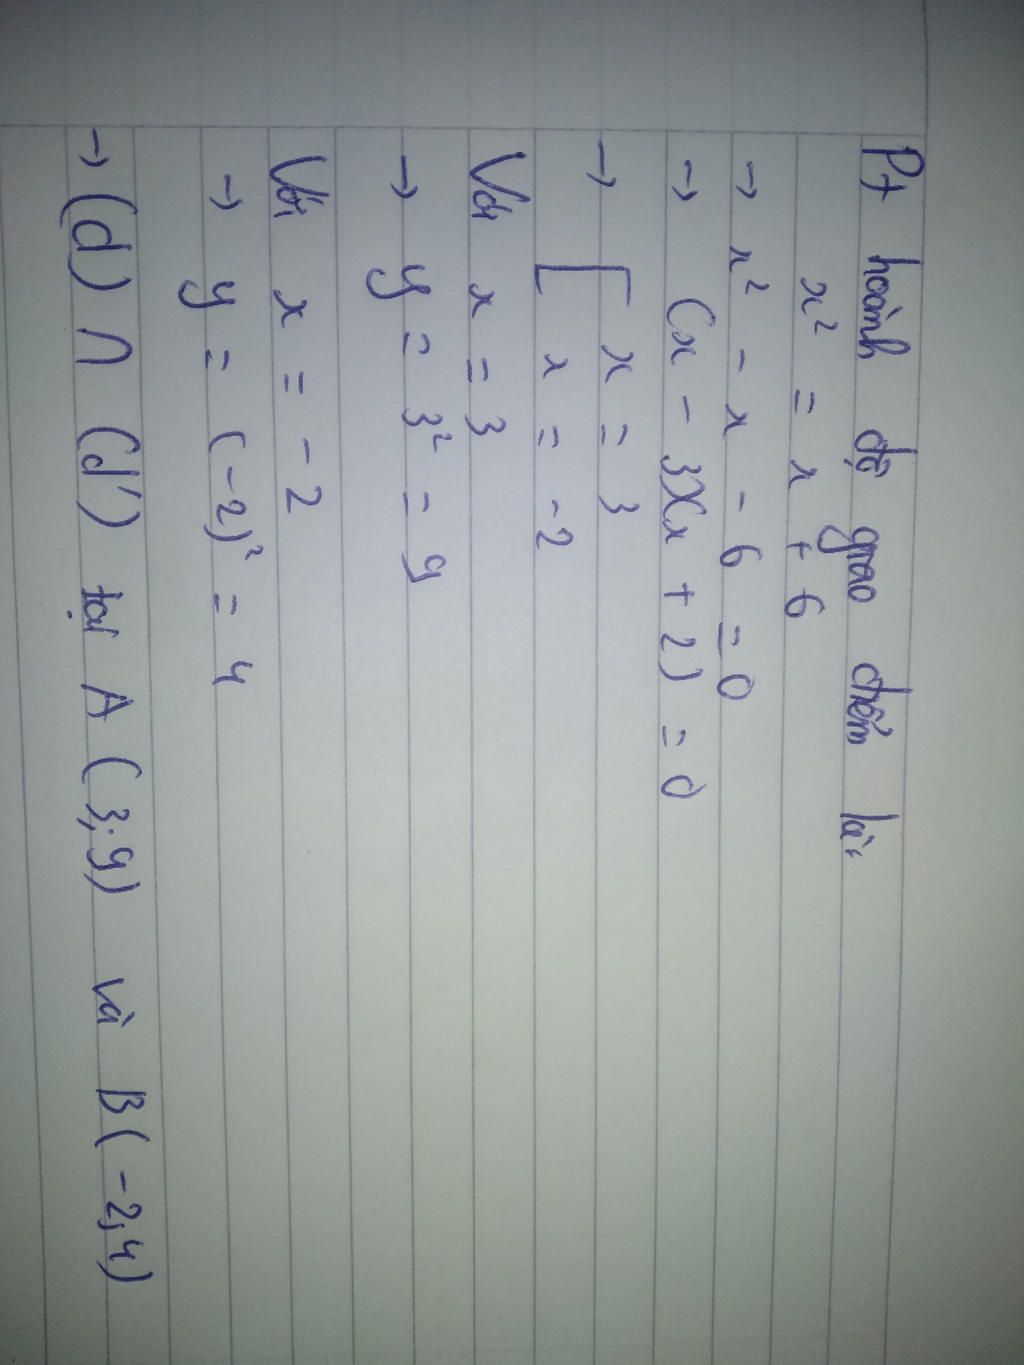 Pt hoành độ giao điểm là:
x² = x + 6
→ x² - x - 6 = 0
→ (x - 3)(x + 2) = 0
→ [ x = 3
x = -2
Với x = 3
→ y = 3² = 9
Với x = -2
→ y = (-2)² = 4
→ (d) ∩ (d') tại A (3;9) và B(-2,4)